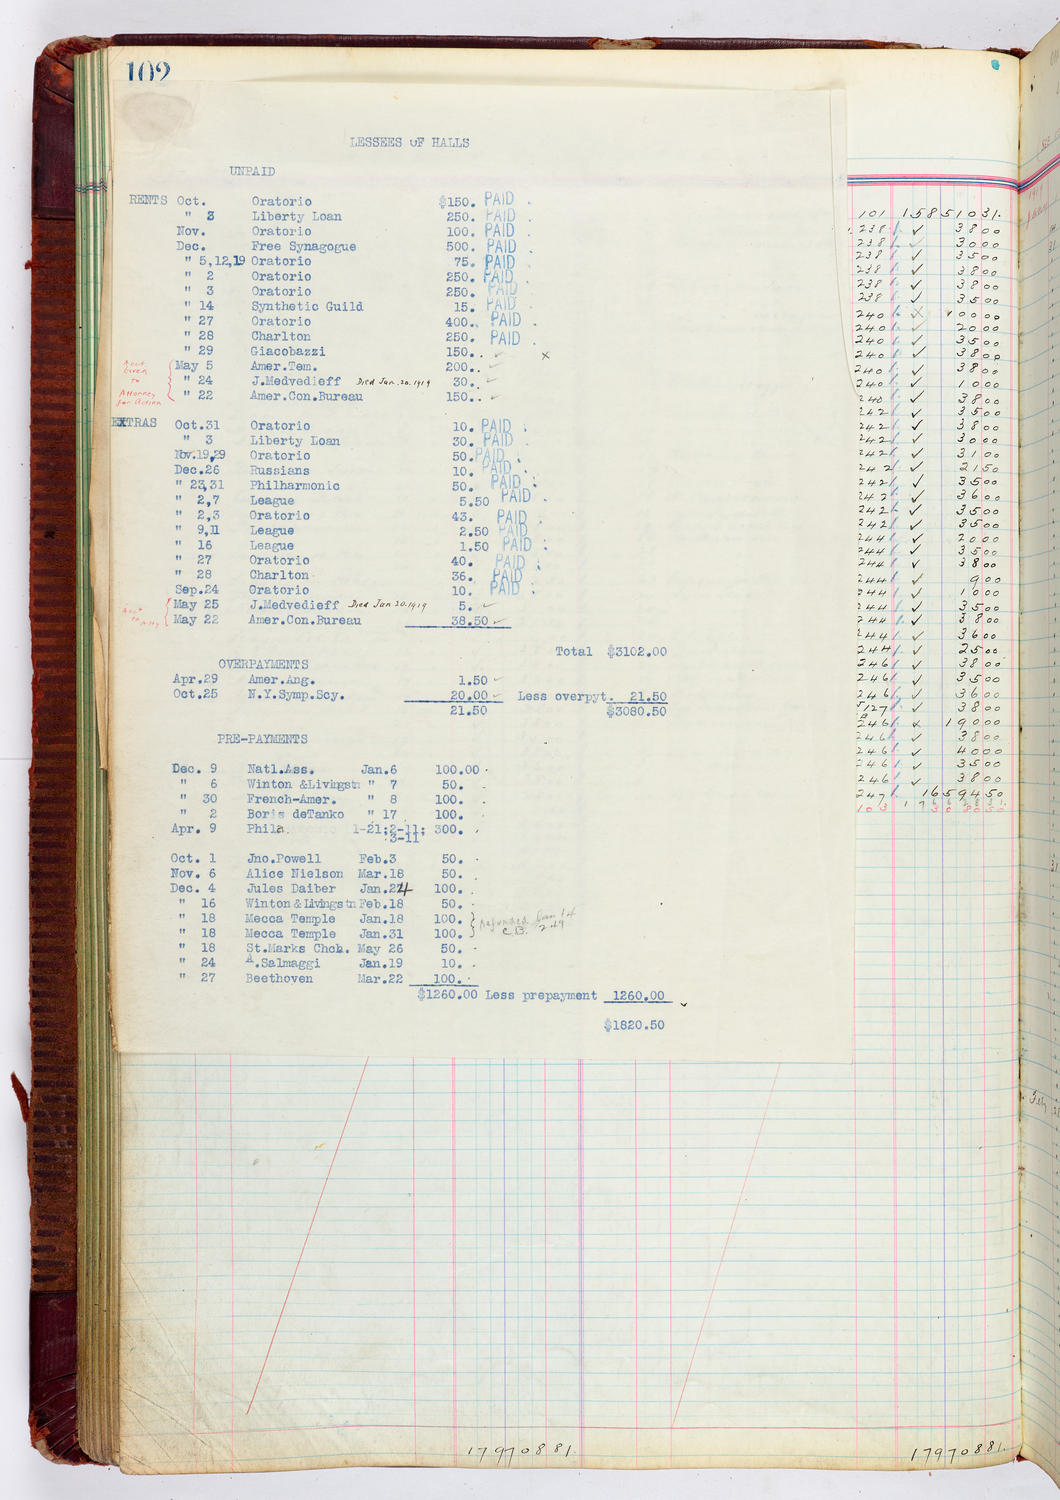 102
LESSEES OF HALLS
UNPAID
RENTS Oct. Oratorio $150. PAID
" 3 Liberty Loan 250. PAID
Nov. Oratorio 100. PAID
Dec. Free Synagogue 500. PAID
" 5,12,19 Oratorio 75. PAID
" 2 Oratorio 250. PAID
" 3 Oratorio 250. PAID
" 14 Synthetic Guild 15. PAID
" 27 Oratorio 400. PAID
" 28 Charlton 250. PAID
" 29 Giacobazzi 150. ✓ x
Acct. Given to Attorney for Action
May 5 Amer.Tem. 200. ✓
" 24 J.Medvedieff Died Jan.20.1919 30. ✓
" 22 Amer.Con.Bureau 150. ✓
EXTRAS Oct.31 Oratorio 10. PAID
" 3 Liberty Loan 30. PAID
Nov.19,29 Oratorio 50. PAID
Dec.26 Russians 10. PAID
" 23,31 Philharmonic 50. PAID
" 2,7 League 5.50 PAID
" 2,3 Oratorio 43. PAID
" 9,11 League 2.50 PAID
" 16 League 1.50 PAID
" 27 Oratorio 40. PAID
" 28 Charlton 36. PAID
Sep.24 Oratorio 10. PAID
May 25 J.Medvedieff Died Jan 20.1919 5. ✓
May 22 Amer.Con.Bureau 38.50 ✓
Total $3102.00
OVERPAYMENTS
Apr.29 Amer.Ang. 1.50 ✓
Oct.25 N.Y.Symp.Scy. 20.00 ✓ Less overpyt. 21.50
21.50 $3080.50
PRE-PAYMENTS
Dec. 9 Natl.Ass. Jan.6 100.00
" 6 Winton &Livingstn " 7 50.
" 30 French-Amer. " 8 100.
" 2 Boris deTanko " 17 100.
Apr. 9 Phila. 1-21;2-11; 300.
3-11
Oct. 1 Jno.Powell Feb.3 50.
Nov. 6 Alice Nielson Mar.18 50.
Dec. 4 Jules Daiber Jan.24 100.
" 16 Winton & Livingstn Feb.18 50.
" 18 Mecca Temple Jan.18 100.
" 18 Mecca Temple Jan.31 100.
Refunded Jan 14
C.B. 249
" 18 St.Marks Chch. May 26 50.
" 24 A.Salmaggi Jan.19 10.
" 27 Beethoven Mar.22 100.
$1260.00 Less prepayment 1260.00 ✓
$1820.50
101 15851031.
238 ✓ 3800
238 ✓ 3000
238 ✓ 3500
238 ✓ 3800
238 ✓ 3800
238 ✓ 3500
240 x
240 ✓ 2000
240 ✓ 3500
240 ✓ 3800
240 ✓ 3800
240 ✓ 1000
240 ✓ 3800
242 ✓ 3500
242 ✓ 3800
242 ✓ 3000
242 ✓ 3100
242 ✓ 2150
242 ✓ 3500
242 ✓ 3600
242 ✓ 3500
242 ✓ 3500
244 ✓ 2000
244 ✓ 3500
244 ✓ 3800
244 ✓ 900
244 ✓ 1000
244 ✓ 3500
244 ✓ 3800
244 ✓ 3600
244 ✓ 2500
246 ✓ 3800
246 ✓ 3500
246 ✓ 3600
127 ✓ 3800
246 x 19000
246 ✓ 3800
246 ✓ 4000
246 ✓ 3500
246 ✓ 3800
247 16594 50
103
17970881.
17970881.